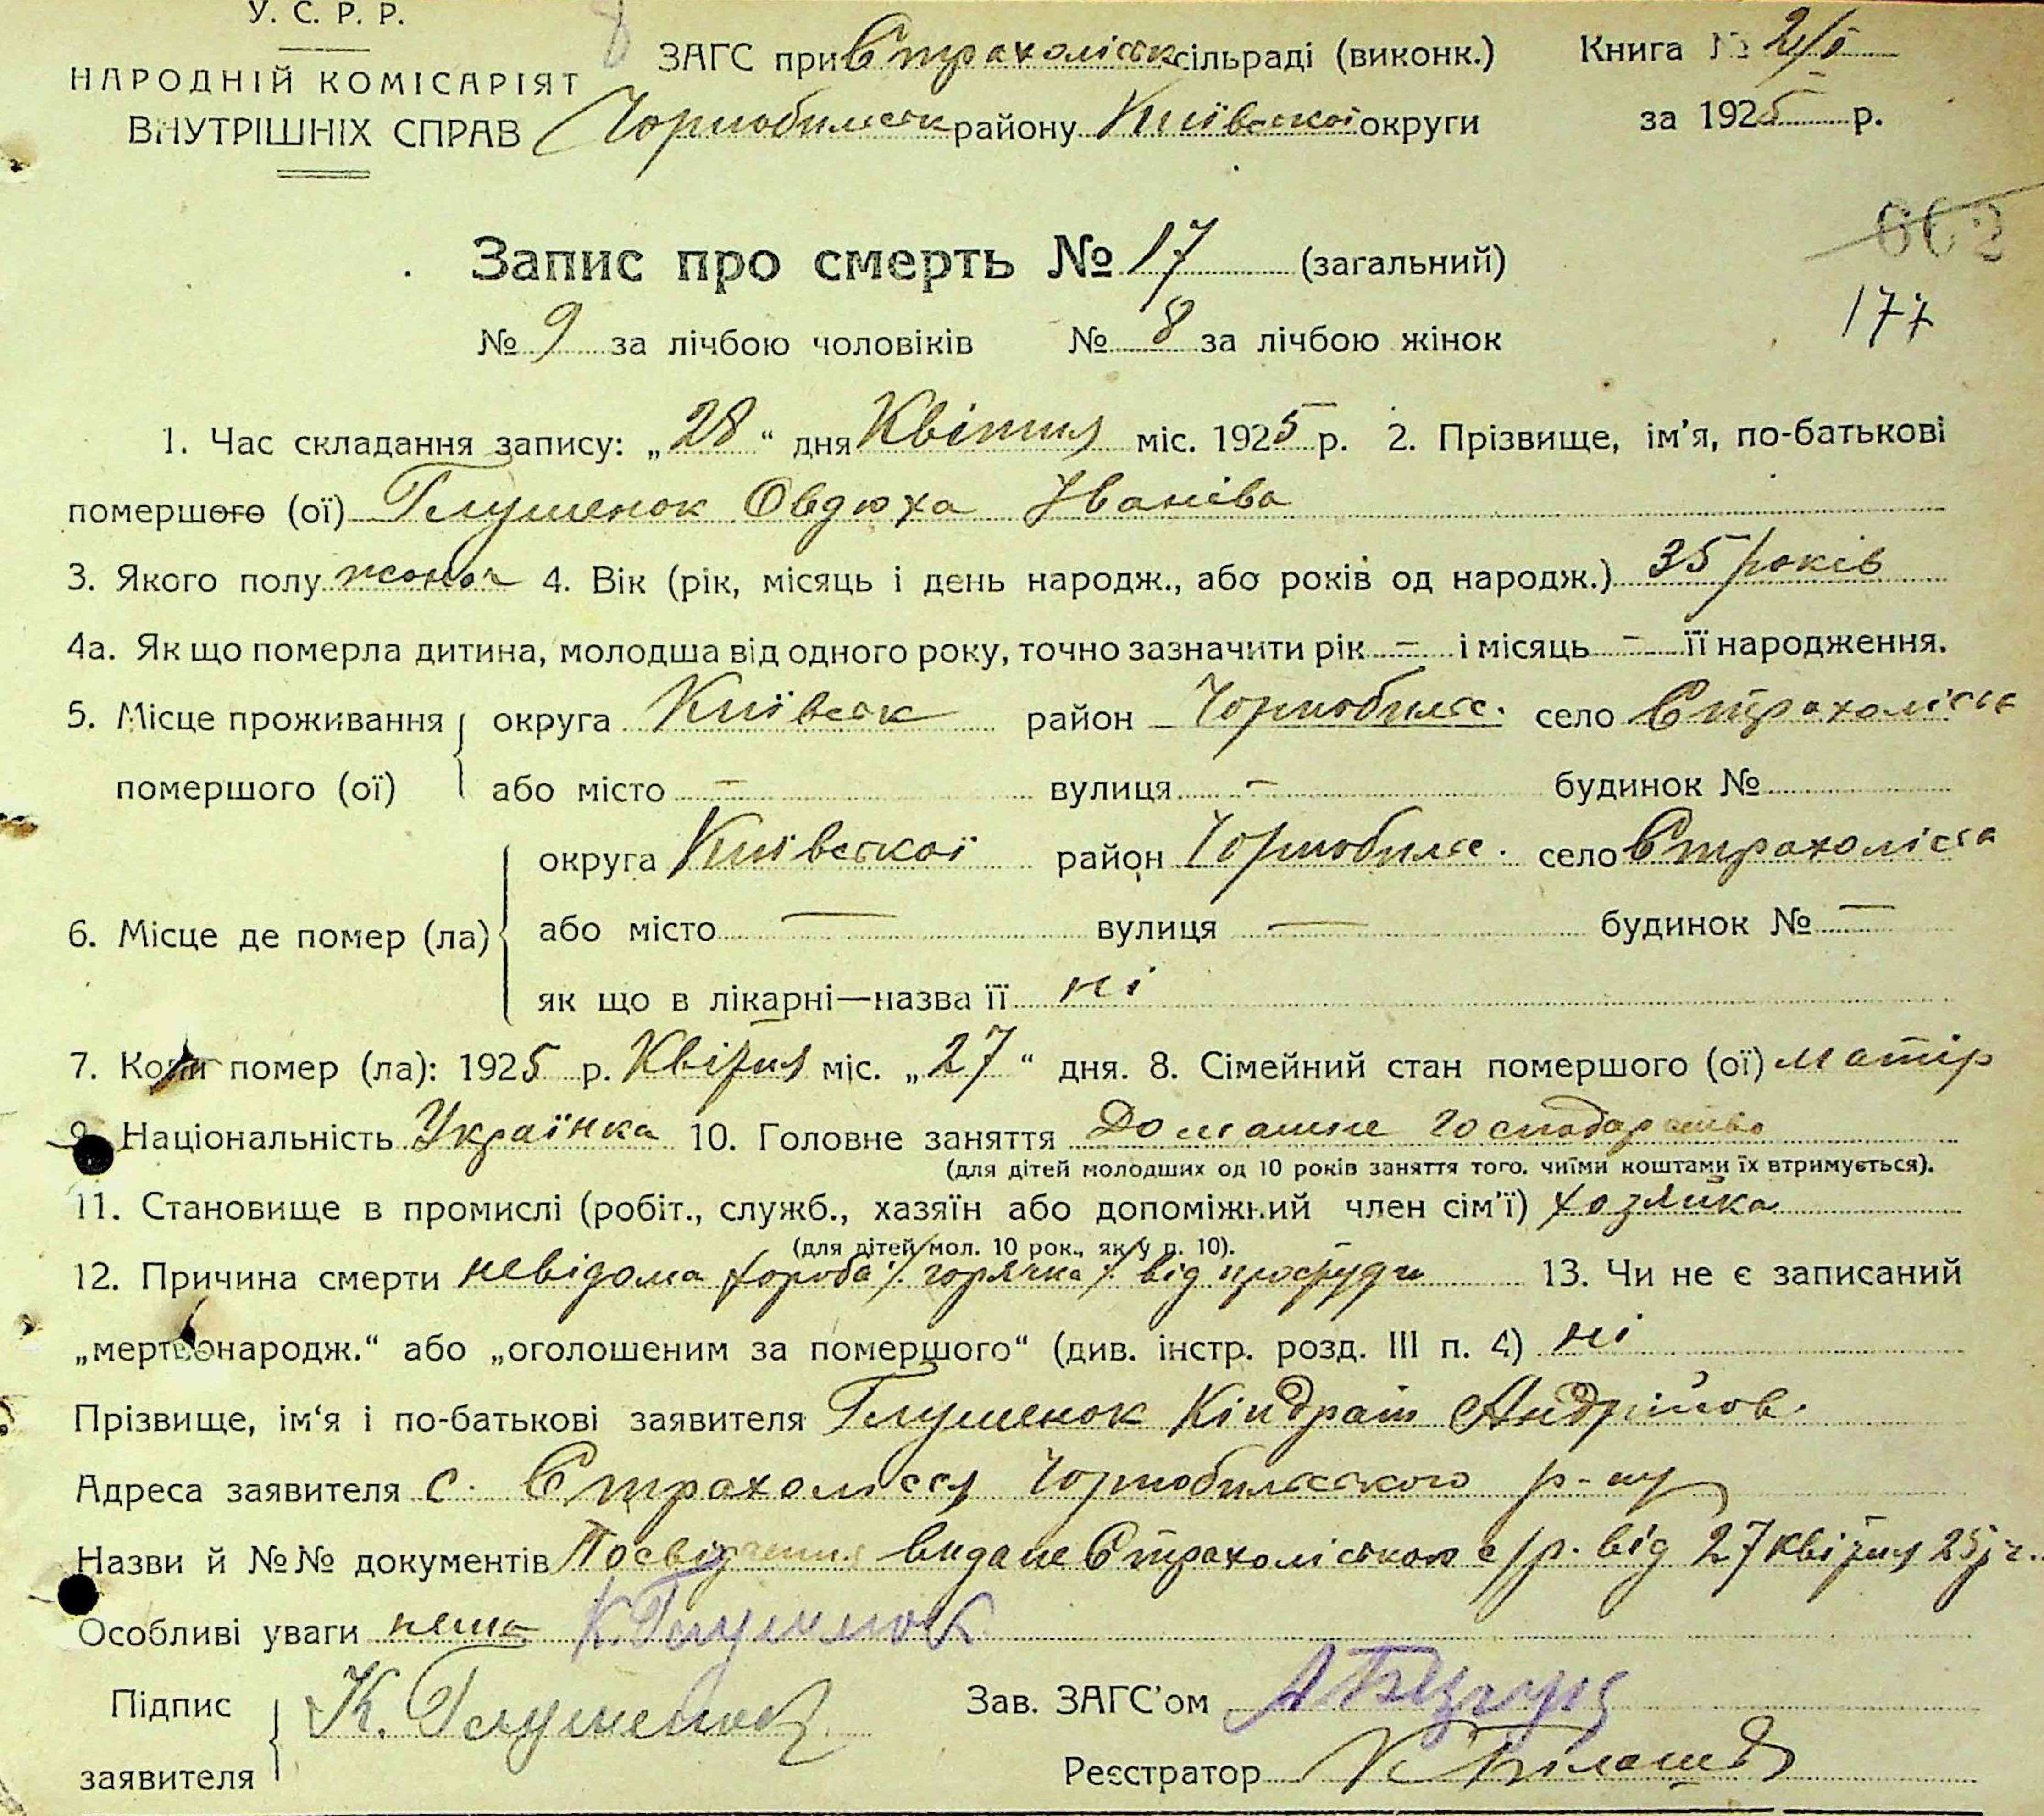 У. С. Р. Р.
НАРОДНІЙ КОМІСАРІЯТ
ВНУТРІШНІХ СПРАВ
ЗАГС при Страхоліськ сільраді (виконк.)
Чорнобильськ району Київської округи
Книга № 2/
за 1925 р.
662
177
Запис про смерть № 17 (загальний)
№ 9 за лічбою чоловіків № 8 за лічбою жінок
1. Час складання запису: „28“ дня Квітня міс. 1925 р. 2. Прізвище, ім’я, по-батькові
помершого (ої) Глушенок Овдюха Іваніва
3. Якого полу жоноч 4. Вік (рік, місяць і день народж., або років од народж.) 35 років
4а. Як що померла дитина, молодша від одного року, точно зазначити рік — і місяць — її народження.
5. Місце проживання округа Київськ район Чорнобильс. село Страхолісся
помершого (ої) або місто — вулиця — будинок №
округа Київської район Чорнобильс. село Страхолісся
6. Місце де помер (ла) або місто — вулиця — будинок № —
як що в лікарні—назва її ні
7. Коли помер (ла): 1925 р. Квітня міс. „27“ дня. 8. Сімейний стан помершого (ої) матір
9. Національність Українка 10. Головне заняття Домашнє господарство
(для дітей молодших од 10 років заняття того, чиїми коштами їх втримується).
11. Становище в промислі (робіт., служб., хазяїн або допоміжний член сім’ї) хозяйка
(для дітей мол. 10 рок., як у п. 10).
12. Причина смерти невідома хороба /горячка/ від простуди 13. Чи не є записаний
„мертвонародж.“ або „оголошеним за помершого“ (див. інстр. розд. III п. 4) ні
Прізвище, ім‘я і по-батькові заявителя Глушенок Кіндрат Андрійов.
Адреса заявителя с. Страхолісся Чорнобильського р-ну
Назви й №№ документів Посвідчення видане Страхоліською с/р. від 27 квітня 25 р.
Особливі уваги нема К. Глушенок
Підпис заявителя К. Глушенок
Зав. ЗАГС’ом
Реєстратор